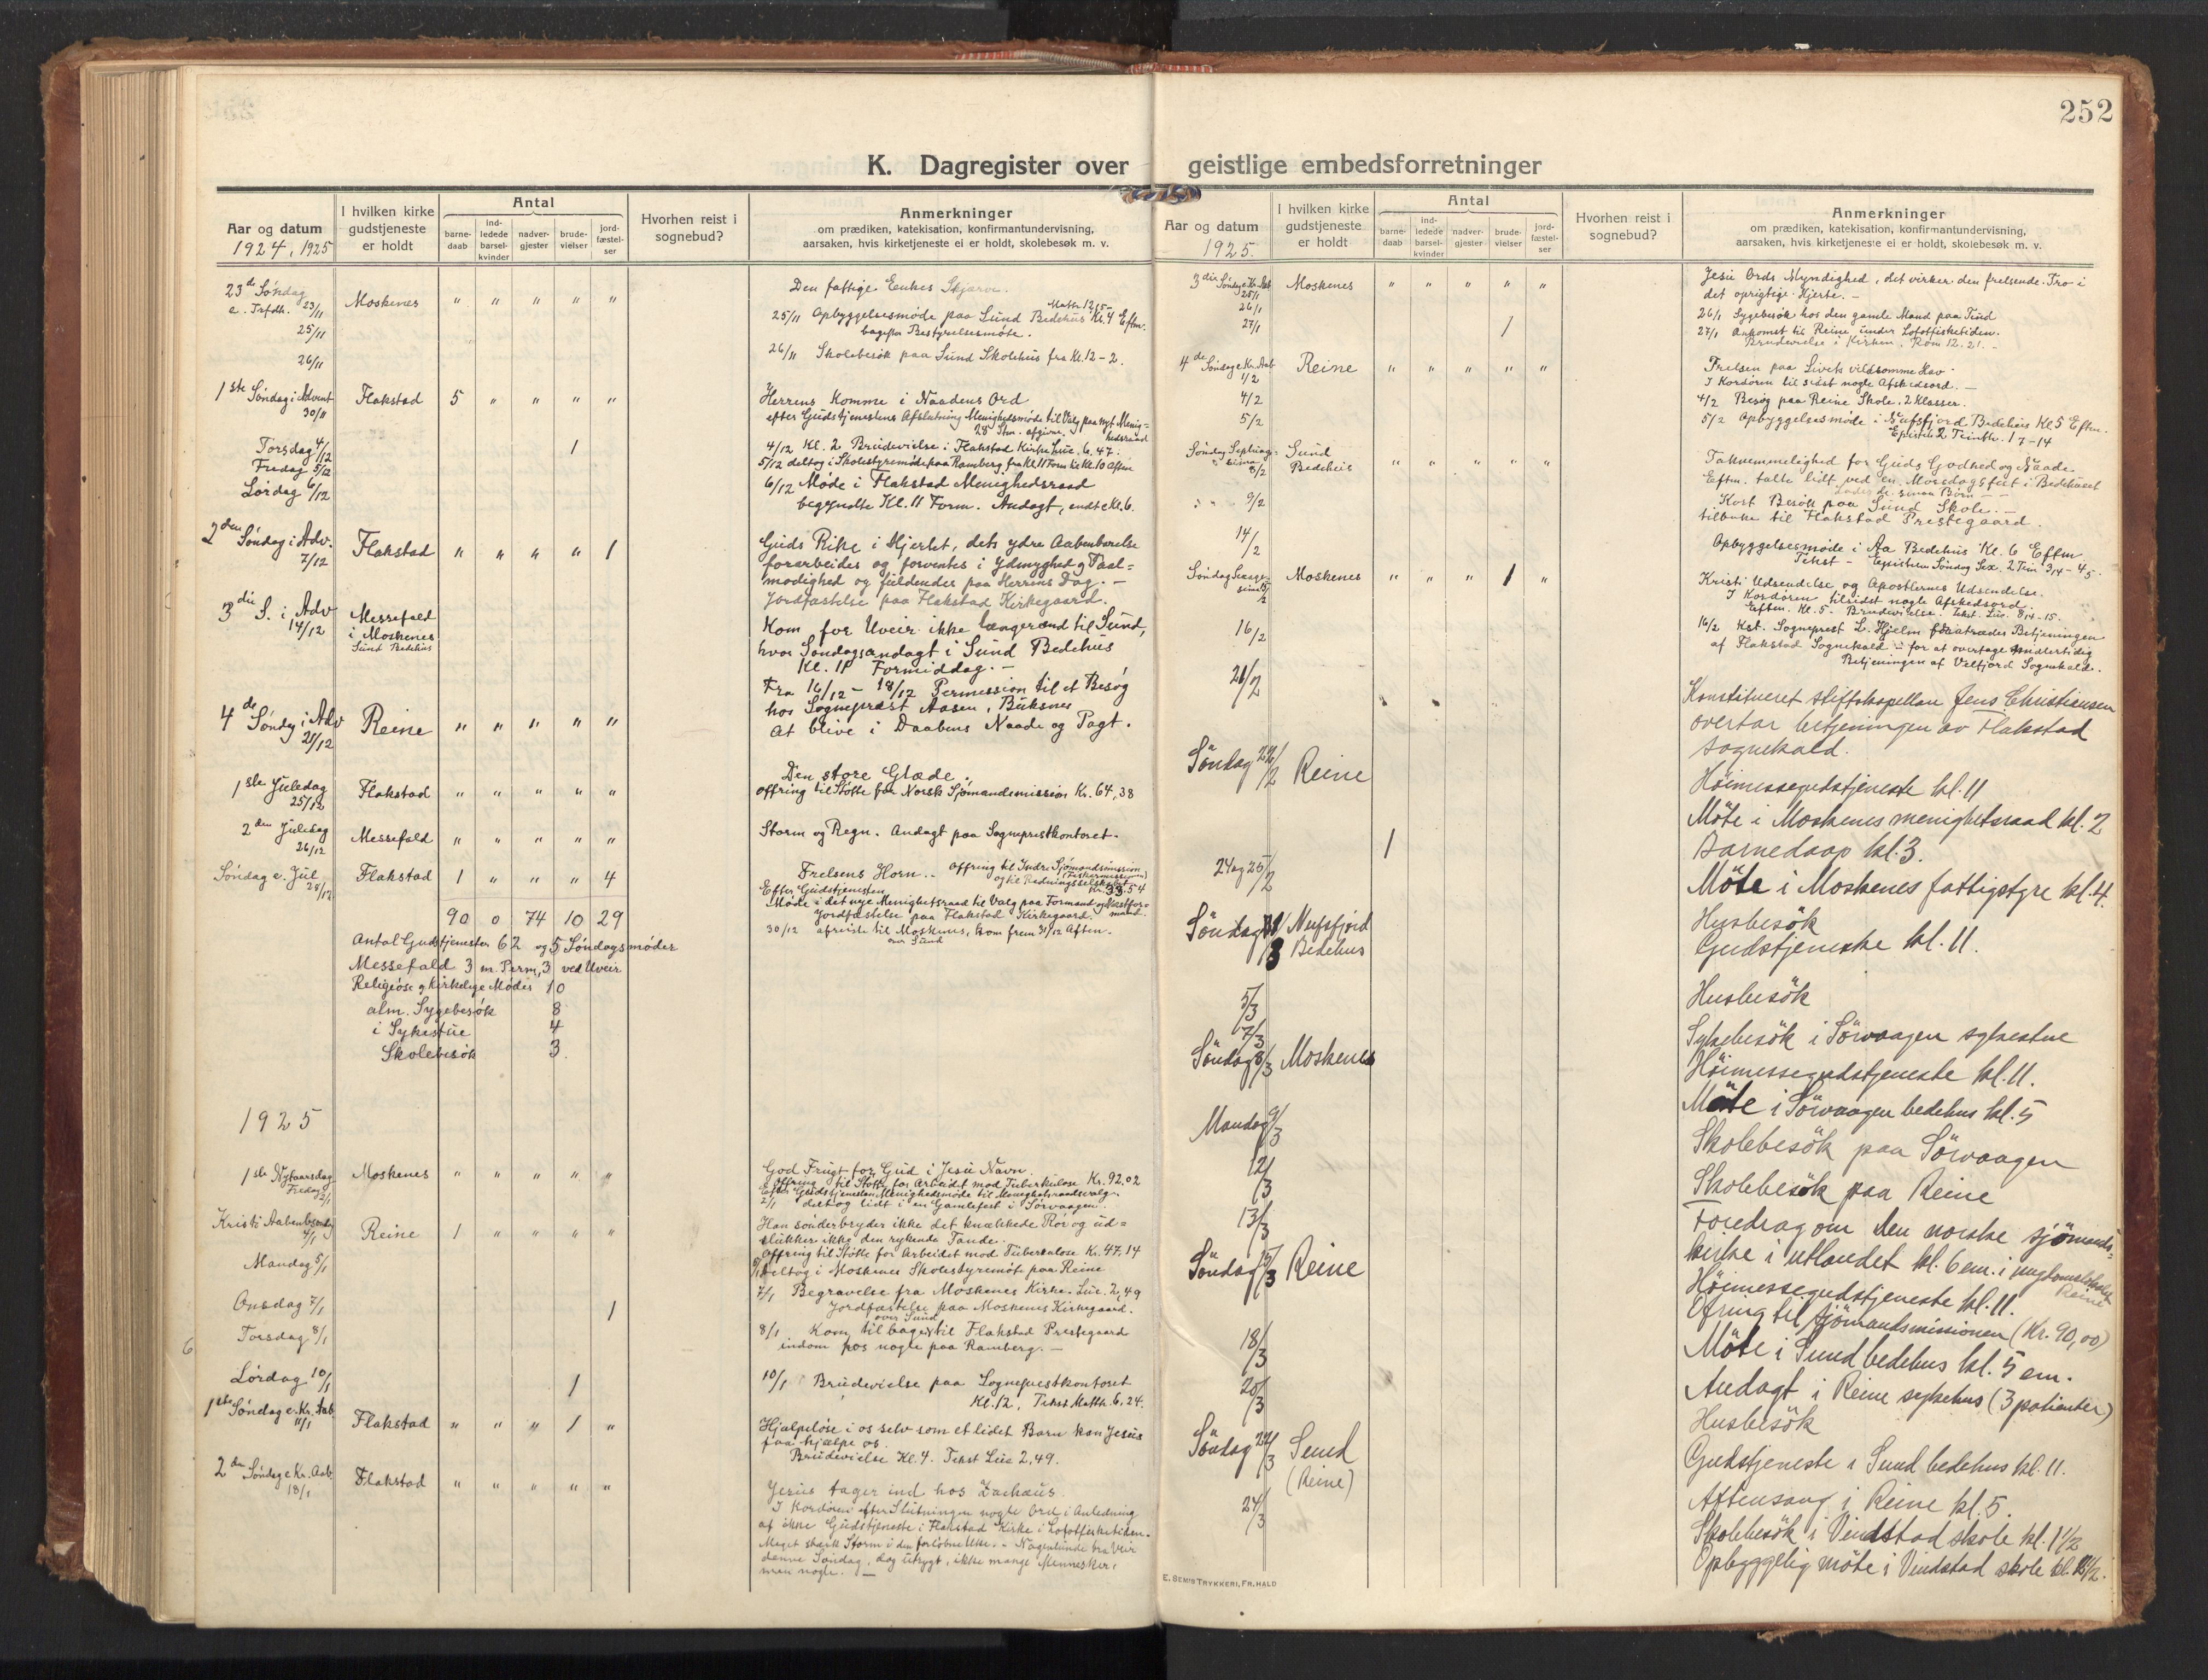 252
K. Dagregister over geistlige embedsforretninger
Aar og datum
1924, 1925
I hvilken kirke
gudstjeneste
er holdt
Antal
barne-
daab
ind-
ledede
barsel-
kvinder
nadver-
gjester
brude-
vielser
jord-
fæstel-
ser
Hvorhen reist i
sognebud?
Anmerkninger
om prædiken, katekisation, konfirmantundervisning,
aarsaken, hvis kirketjeneste ei er holdt, skolebesøk m. v.
23de Søndag
e. Trefdh. 23/11 Moskenes " " " " " Den fattige Enkes Skjærv.
25/11 25/11 Opbyggelsesmøde paa Sund Bedehus Kl. 4 Eftm.
Matth. 12, 15-
bagefter Bestyrelsesmøte.
26/11 26/11 Skolebesøk paa Sund Skolehus fra Kl. 12 - 2.
1ste Søndag i Advent
30/11 Flakstad 5 " " " " Herrens Komme i Naadens Ord
efter Gudstjenestens Afslutning Menighedsmøde til Valg paa nyt Menig=
hedsraad
28 Stm. afgivne.
Torsdag 4/12 1 4/12 Kl. 2 Brudevielse i Flakstad Kirke Luc. 6.47.
Fredag 5/12 5/12 deltog i Skolestyremøde paa Ramberg, fra Kl 11 Form til Kl. 10 Aften
Lørdag 6/12 6/12 Møde i Flakstad Menighedsraad
begyndte Kl. 11 Form. Andagt, endte Kl. 6.
2den Søndag i Adv.
7/12 Flakstad " " " " 1 Guds Rike i Hjertet, dets ydre Aabenbarelse
forarbeides og forventes i Ydmyghed og Taal=
modighed og fuldendes paa Herrens Dag. -
Jordfæstelse paa Flakstad Kirkegaard.
3die S. i Adv
14/12 Messefald
i Moskenes
Sund Bedehus
Kom for Uveir ikke længer end til Sund,
hvor Søndagsandagt i Sund Bedehus
Kl. 11 Formiddag. -
Fra 16/12 - 18/12 Permission til et Besøg
hos Sogneprest Aasen, Buksnes
4de Søndg i Adv
21/12 Reine " " " " " At blive i Daabens Naade og Pagt.
1ste Juledag
25/12 Flakstad " " " " " Den store Glæde.
Offring til Støtte for Norsk Sjømandsmission Kr. 64,38
2den Juledag
26/12 Messefald " " " " " Storm og Regn. Andagt paa Sogneprestkontoret.
Søndag e. Jul
28/12 Flakstad 1 " " " 4 Frelsens Horn. - Offring til Indre Sjømandsmission
(Fiskermissionen)
og til Redningsselskabet
Kr. 33.54
Efter Gudstjenesten
Møde i det nye Menighetsraad til Valg paa Formand og Næstfor=
mand.
Jordfæstelse paa Flakstad Kirkegaard.
90 0 74 10 29
30/12 afreiste til Moskenes, kom frem 31/12 Aften.
over Sund
Antal Gudstjenester 62 og 5 Søndagsmøder
Messefald 3 m. Perm, 3 ved Uveir
Religiøse og kirkelige Møder 10
alm. Sygebesøk 8
i Sykestue 4
Skolebesøk 3.
1925
1ste Nytaarsdag
Fredag 2/1
Moskenes " " " " " God Frugt for Gud i Jesu Navn.
Offring til Støtte for Arbeidet mod Tuberkulose Kr. 92.02
Efter Gudstjenesten Menighedsmøde til Menighetsraadsvalg.
2/1 deltog lidt i en Gamlefest i Sørvaagen.
Kristi Aabenb.søndg
4/1 Reine 1 " " " " Han sønderbryder ikke det knækkede Rør og ud=
slukker ikke den rykende Tande.
Offring til Støtte for Arbeidet mod Tuberkulose Kr. 47.14
Mandag 5/1 5/1 deltog i Moskenes Skolestyremøt paa Reine
Onsdag 7/1 1 7/1 Begravelse fra Moskenes Kirke. Luc. 2,49
Jordfæstelse paa Moskenes Kirkegaard.
Torsdag 8/1 8/1 Kom over Sund tilbage til Flakstad Prestegaard
indom hos nogle paa Ramberg. -
6
Lørdag 10/1 1 10/1 Brudevielse paa Sogneprestkontoret
Kl. 12, Tekst Matth. 6,24.
1ste Søndag e. Kr. Aab.
11/1 Flakstad " " " 1 " Hjælpeløse i os selv som et lidet Barn kan Jesus
faa hjælpe os.
Brudevielse Kl. 4. Tekst Luc 2,49.
2den Søndag e Kr. Aab.
18/1 Flakstad " " " " " Jesus tager ind hos Zachæus.
I Kordøren efter Slutningen nogle Ord i Anledning
af ikke Gudstjeneste i Flakstad Kirke i Lofotfisketiden.
Meget stærk Storm i den forløbne Uke. - Nogenlunde bra Veir
denne Søndag, dog utrygt, ikke mange Mennesker,
men nogle. -
Aar og datum
1925.
I hvilken kirke
gudstjeneste
er holdt
Antal
barne-
daab
ind-
ledede
barsel-
kvinder
nadver-
gjester
brude-
vielser
jord-
fæstel-
ser
Hvorhen reist i
sognebud?
Anmerkninger
om prædiken, katekisation, konfirmantundervisning,
aarsaken, hvis kirketjeneste ei er holdt, skolebesøk m. v.
3die Søndag e Kr. Aab
25/1 Moskenes " " " " " Jesu Ords Myndighed, det virker den frelsende Tro i
det oprigtige Hjerte. -
26/1 26/1 Sygebesøk hos den gamle Mand paa Tind
27/1 1 27/1 Ankomst til Reine under Lofotfisketiden.
Brudevielse i Kirken. Rom 12.21. -
4de Søndag e Kr. Aab
1/2 Reine " " " " " Frelsen paa Livets vildsomme Hav
I Kordøren til sidst nogle Afskedsord. -
4/2 4/2 Besøg paa Reine Skole. 2 Klasser.
5/2 5/2 Opbyggelsesmøde i Nufsfjord Bedehus Kl 5 Eftm.
Epistel 2 Timth. 1 7-14
Søndag Septuage-
sima 8/2 Sund
Bedehus " " " " " Taknemmelighed for Guds Godhed og Naade.
Eftm. talte lidt ved en Morsdagsfest i Bedehuset
Lader de smaa Børn -
9/2 Kort Besøk paa Sund Skole. -
tilbake til Flakstad Prestegaard.
14/2 Opbyggelsesmøde i Aa Bedehus Kl. 6 Eftm
Tekst - Epistelen Søndag Sex. 2 Tim 3,14 - 4,5.
Søndag Sexage-
sima 15/2 Moskenes " " " 1 " Kristi Udsendelse og Apostlernes Udsendelse.
I Kordøren tilsidst nogle Afskedsord.
Eftm. Kl. 5. Brudevielse. Tekst. Luc. 8,14-15.
16/2 16/2 Kst. Sogneprest L. Hjelm fratræder Betjeningen
af Flakstad Sognekald - for at overtage midlertidig
Betjeningen af Velfjord Sognekald.
21/2 Konstitueret stiftskapellan Jens Christiansen
overtar betjeningen av Flakstad
sognekald.
Søndag 22/2 Reine Høimessegudstjeneste kl. 11
Møte i Moskenes menighetsraad kl. 2
1 Barnedaap kl. 3.
Møte i Moskenes fattigstyre kl. 4.
24 og 25/2 Husbesøk
Søndag 1/3 Nufsfjord
Bedehus Gudstjeneste kl. 11.
5/3 Husbesøk
7/3 Sykebesøk i Sørvaagen sykestue
Søndag 8/3 Moskenes Høimessegudstjeneste kl. 11.
Møte i Sørvaagen bedehus kl. 5
Mandag 9/3 Skolebesøk paa Sørvaagen
12/3 Skolebesøk paa Reine
13/3 Foredrag om den norske sjømands-
kirke i utlandet kl. 6 em. i ungdomslokalet
Reine
Søndag 15/3 Reine Høimessegudstjeneste kl. 11.
Ofring til sjømandsmissionen (Kr. 90,00)
18/3 Møte i Sund bedehus kl. 5 em.
20/3 Andagt i Reine sykehus (3 patienter)
Husbesøk
Søndag 22/3 Sund
(Reine) Gudstjeneste i Sund bedehus kl. 11.
Aftensang i Reine kl. 5.
24/3 Skolebesøk i Vindstad skole kl. 1 1/2
Opbyggelig møte i Vindstad skole kl.
E. SEM'S TRYKKERI, FR.HALD